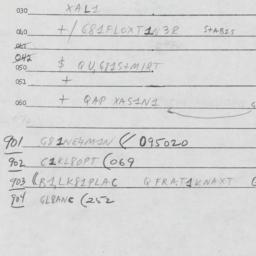 030 XAL1
040 +/G81FLOXT1N3R S+AB1S
045
042
050 $ QU,G81S+M1RT
051 +
060 + QAP XAS1N1
901 G81NE4M1N ( 095020
902 C1KL8OPT (069
903 (R1LK81PLAC QFRAT1KNAXT
904 GL8ANC (252